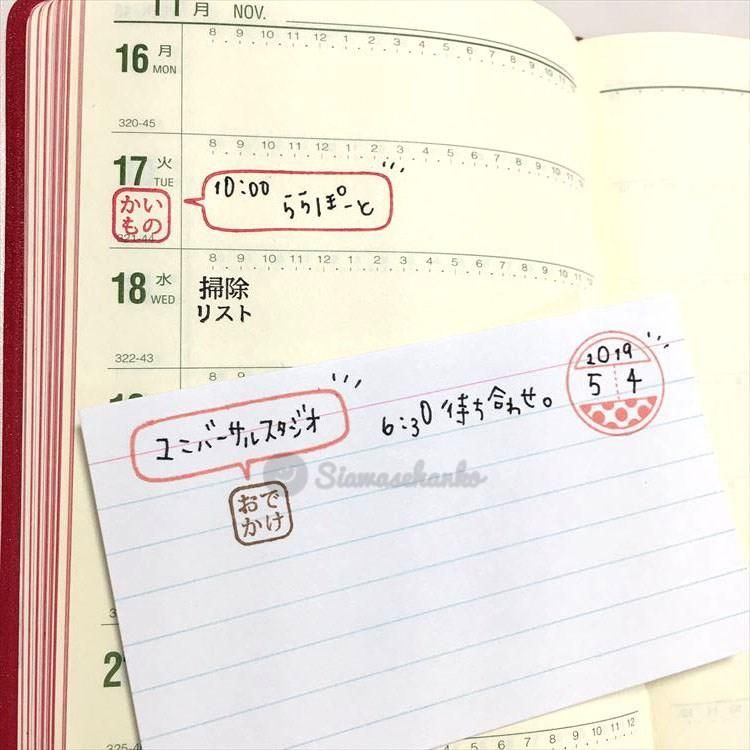 11月 NOV.
8 9 10 11 12 1 2 3 4 5 6 7 8 9 10 11 12
16 月
MON
320-45
8 9 10 11 12 1 2 3 4 5 6 7 8 9 10 11 12
17 火
TUE
かい
もの
321-44
10:00
ららぽーと
8 9 10 11 12 1 2 3 4 5 6 7 8 9 10 11 12
18 水
WED
掃除
リスト
322-43
8 9
2019
5 4
6:30 待ち合わせ。
ユニバーサルスタジオ
Siawasehanko
おで
かけ
2
325-4
5 6 7 8 9 10 11 12